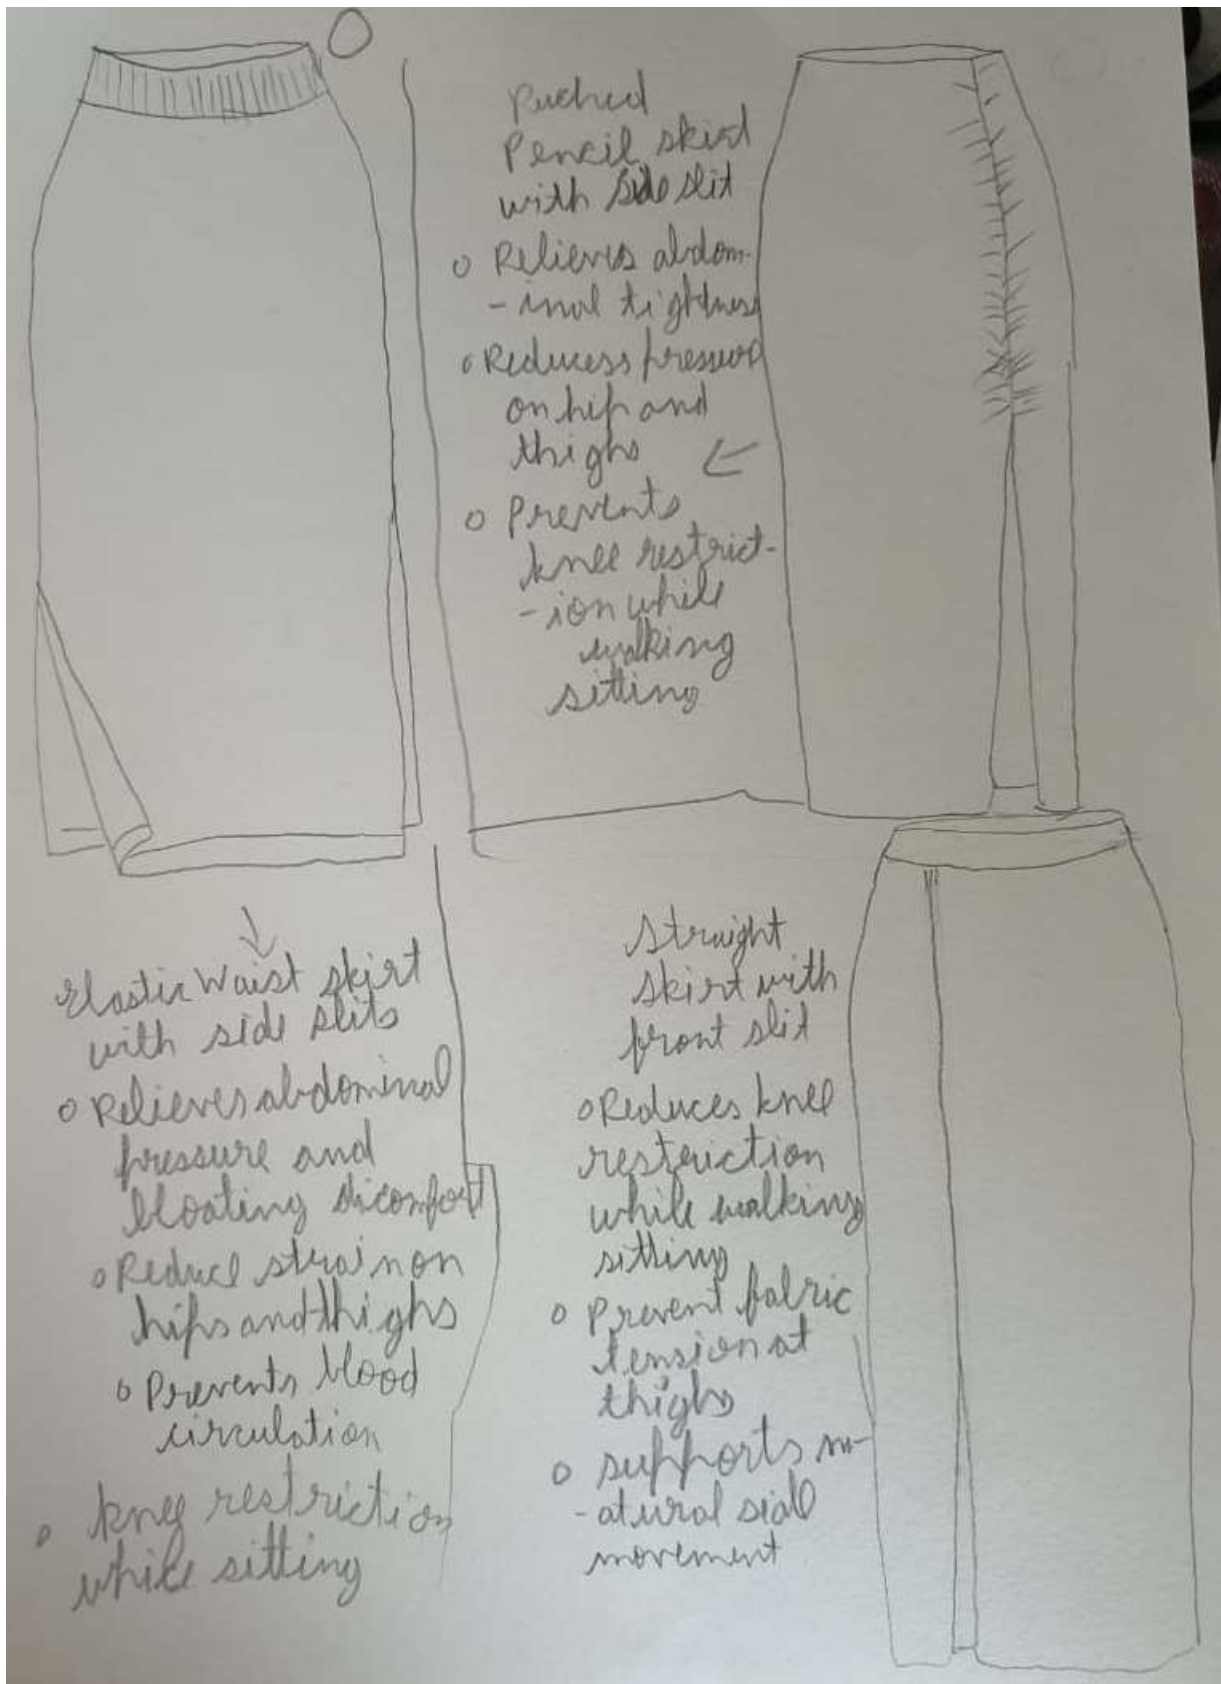 Ruched
Pencil skirt
with side slit
o Relieves abdom-
- inal tightness
o Reducess pressure
on hip and
thighs
o Prevents
knee restrict-
- ion while
walking
sitting
Elastic Waist skirt
with side slits
o Relieves abdominal
pressure and
bloating dicomfort
o Reduce strain on
hips and thighs
o Prevents blood
circulation
o knee restriction
while sitting
Straight
skirt with
front slit
o Reduces knee
restriction
while walking
sitting
o Prevent fabric
tension at
thighs
o supports n-
- atural side
movement